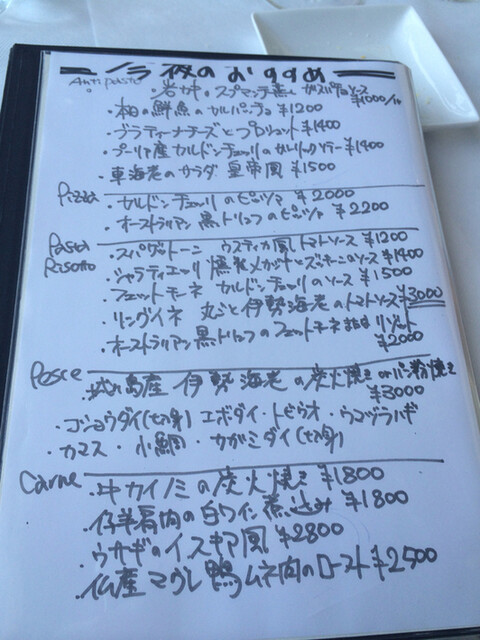 ノラ 夜のおすすめ
Antipasto
・岩ガキのスプマンテ蒸し ガスパチョソース ¥1000/1ヶ
・相の鮮魚のカルパッチョ ¥1200
・ブラティーナチーズとプロシュット ¥1400
・プーリア産カルドンチェッリのガーリックソテー ¥1400
・車海老のサラダ 皇帝風 ¥1500
Pizza
・カルドンチェッリのピッツァ ¥2000
・オーストラリアン黒トリュフのピッツァ ¥2200
Pasta
Risotto
・スパゲットーニ ウスティカ風トマトソース ¥1200
・ジャラティエッリ 燻製メカジキとズッキーニのソース ¥1400
・フェットチーネ カルドンチェッリのソース ¥1500
・リングイネ 丸ごと伊勢海老のトマトソース ¥3000
・オーストラリアン黒トリュフのフェットチーネ又は リゾット
¥2000
Pesce
島産 伊勢海老の炭火焼き or パン粉焼き
¥3000
・コショウダイ(切身) エボダイ・トビウオ・ウマヅラハギ
・カマス・小鯛・カガミダイ(切身)
Carne
・牛カイノミの炭火焼き ¥1800
・仔羊肩肉の白ワイン煮込み ¥1800
・ウサギのイスキア風 ¥2800
・仏産マグレ鴨ムネ肉のロースト ¥2500